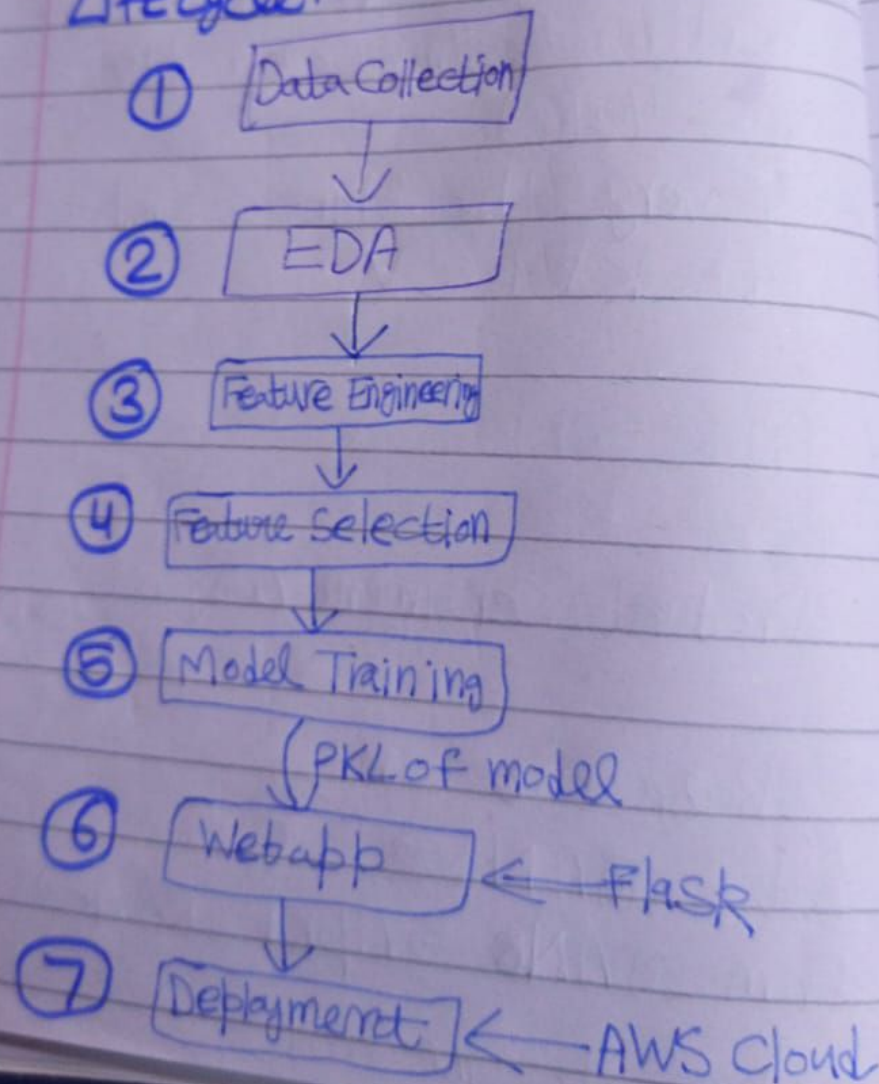 Life Cycle
① Data Collection
② EDA
③ Feature Engineering
④ Feature Selection
⑤ Model Training
PKL of model
⑥ Webapp
Flask
⑦ Deployment
AWS Cloud